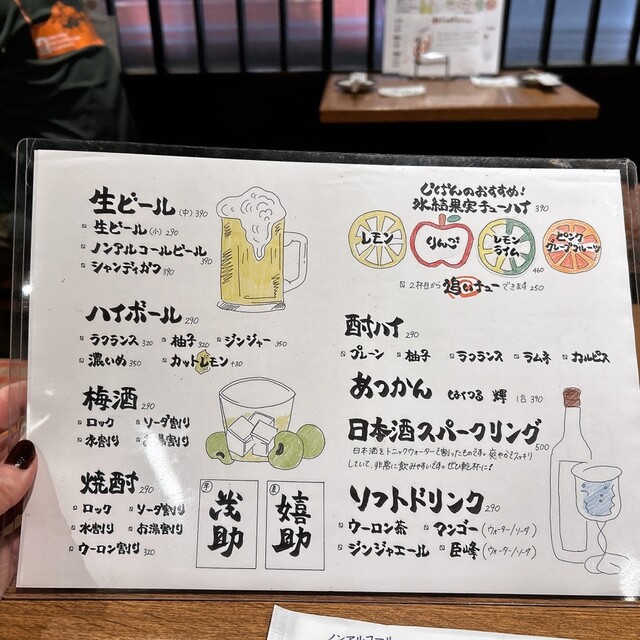 生ビール (中) 390
生ビール (小) 290
ノンアルコールビール 390
シャンディガフ 390
ハイボール 290
ラフランス 320 柚子 320 ジンジャー 350
濃いめ 350 カットレモン +30
梅酒 290
ロック ソーダ割り
水割り お湯割り
焼酎 290
ロック ソーダ割り
水割り お湯割り
ウーロン割り 320
芋 茂助
麦 嬉助
じぱんのおすすめ!
氷結果実チューハイ 390
レモン
りんご
レモンライム 460
ピンクグレープフルーツ
2杯目から 追いチュー できます 250
酎ハイ 290
プレーン 柚子 ラフランス ラムネ カルピス
あつかん はくつる 輝 1合 390
日本酒スパークリング 500
日本酒をトニックウォーターで割ったものです。爽やかでスッキリ
していて、非常に飲みやすいです。ぜひ乾杯に!
ソフトドリンク 290
ウーロン茶 マンゴー (ウォーター/ソーダ)
ジンジャエール 巨峰 (ウォーター/ソーダ)
ノンアルコール